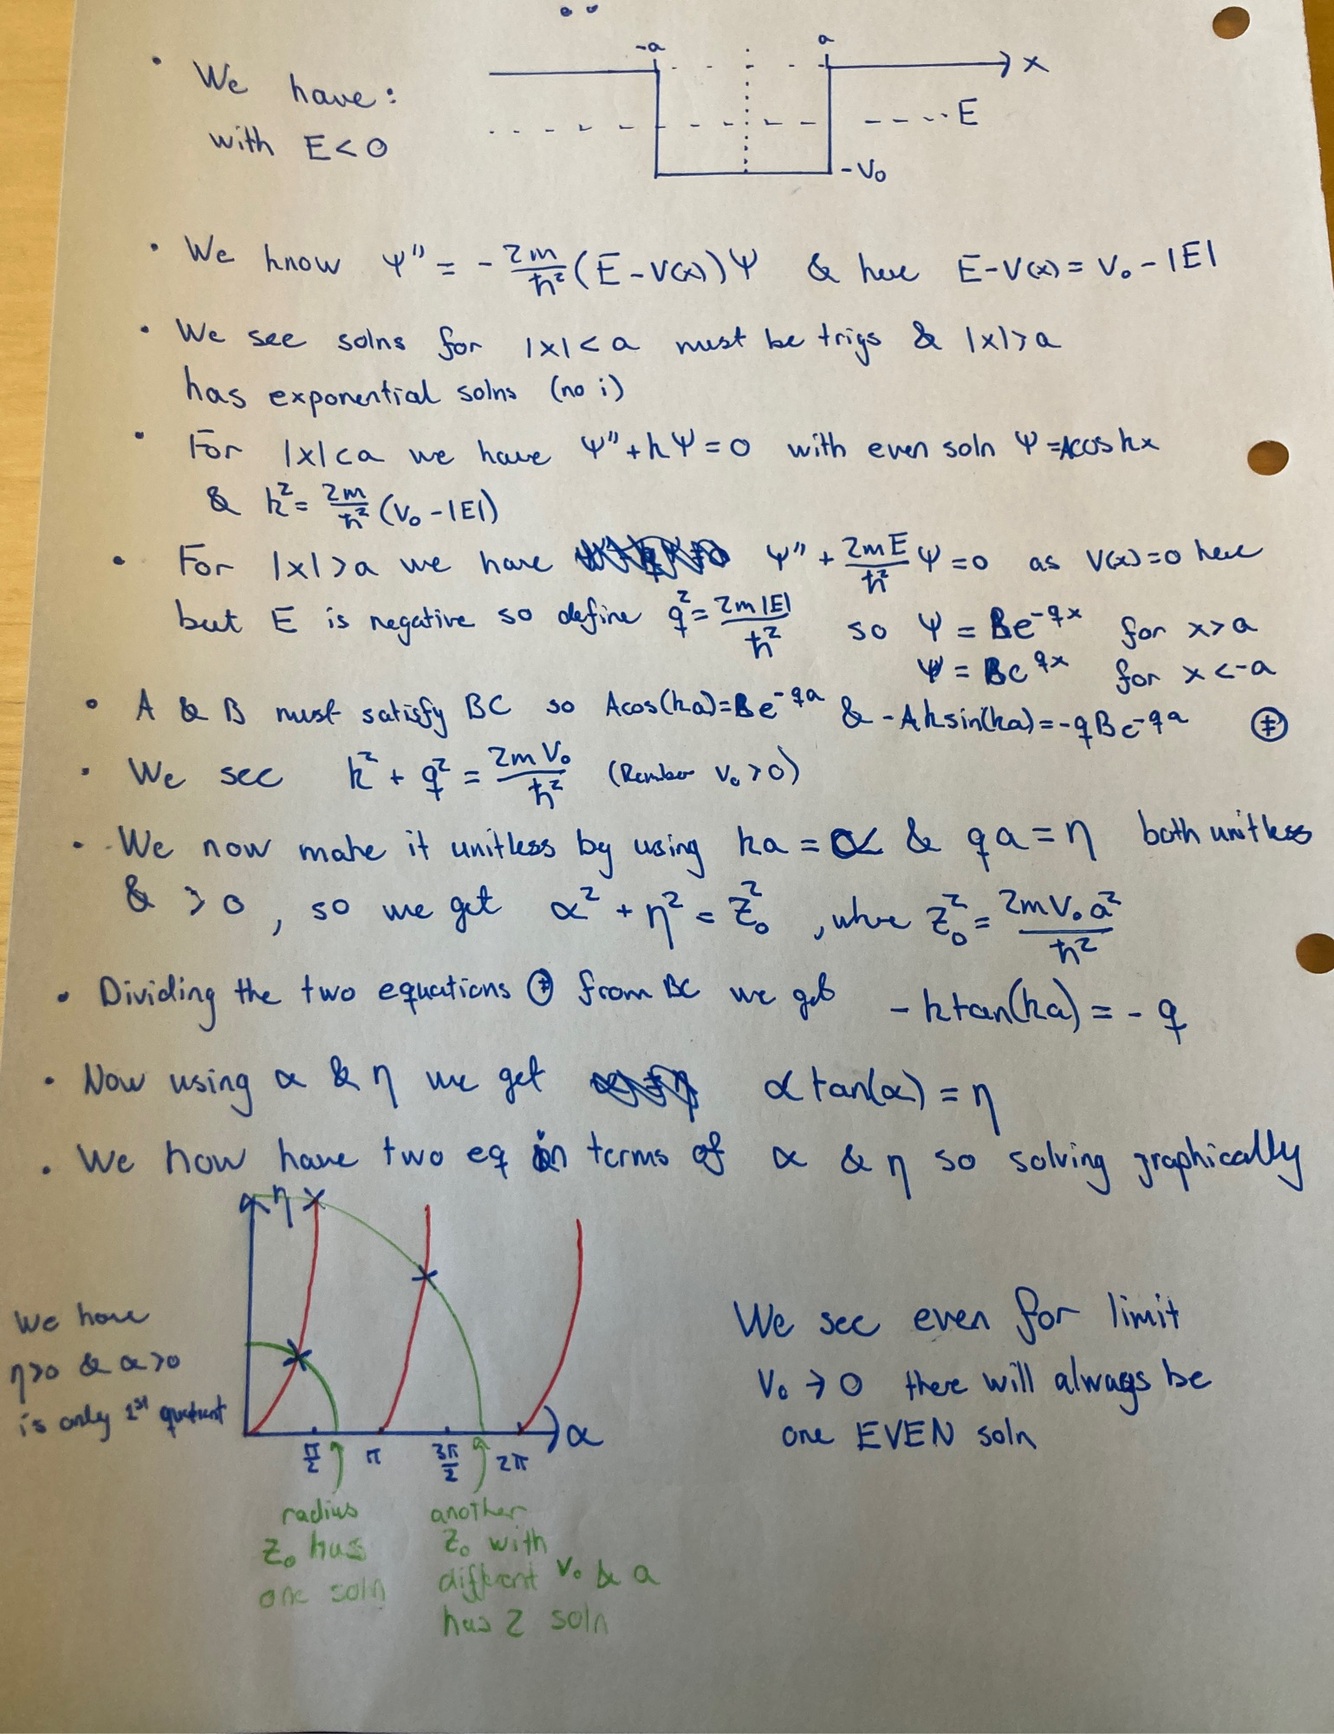 -a a
• We have: x
with E<0 E
-V₀
• We know Ψ'' = - 2m/ħ² (E-V(x))Ψ & here E-V(x) = V₀-|E|
• We see solns for |x|<a must be trigs & |x|>a
has exponential solns (no i)
• For |x|<a we have Ψ''+kΨ=0 with even soln Ψ=Acos kx
& k² = 2m/ħ² (V₀-|E|)
• For |x|>a we have Ψ'' + 2mE/ħ² Ψ=0 as V(x)=0 here
but E is negative so define q² = 2m|E|/ħ² so Ψ = Be^-qx for x>a
Ψ = Be^qx for x<-a
• A & B must satisfy BC so Acos(ka)=Be^-qa & -Aksin(ka)=-qBe^-qa ⊕
• We see k² + q² = 2mV₀/ħ² (Rember V₀>0)
• We now make it unitless by using ka = α & qa = η both unitless
& >0, so we get α² + η² = z₀², where z₀² = 2mV₀a²/ħ²
• Dividing the two equations ⊕ from BC we get -ktan(ka) = -q
• Now using α & η we get αtan(α) = η
• We now have two eq in terms of α & η so solving graphically
η
We have
η>0 & α>0
is only 1st quadrant
π/2 π 3π/2 2π α
radius
z₀ has
one soln
another
z₀ with
different V₀ & a
has 2 soln
We see even for limit
V₀ → 0 there will always be
one EVEN soln